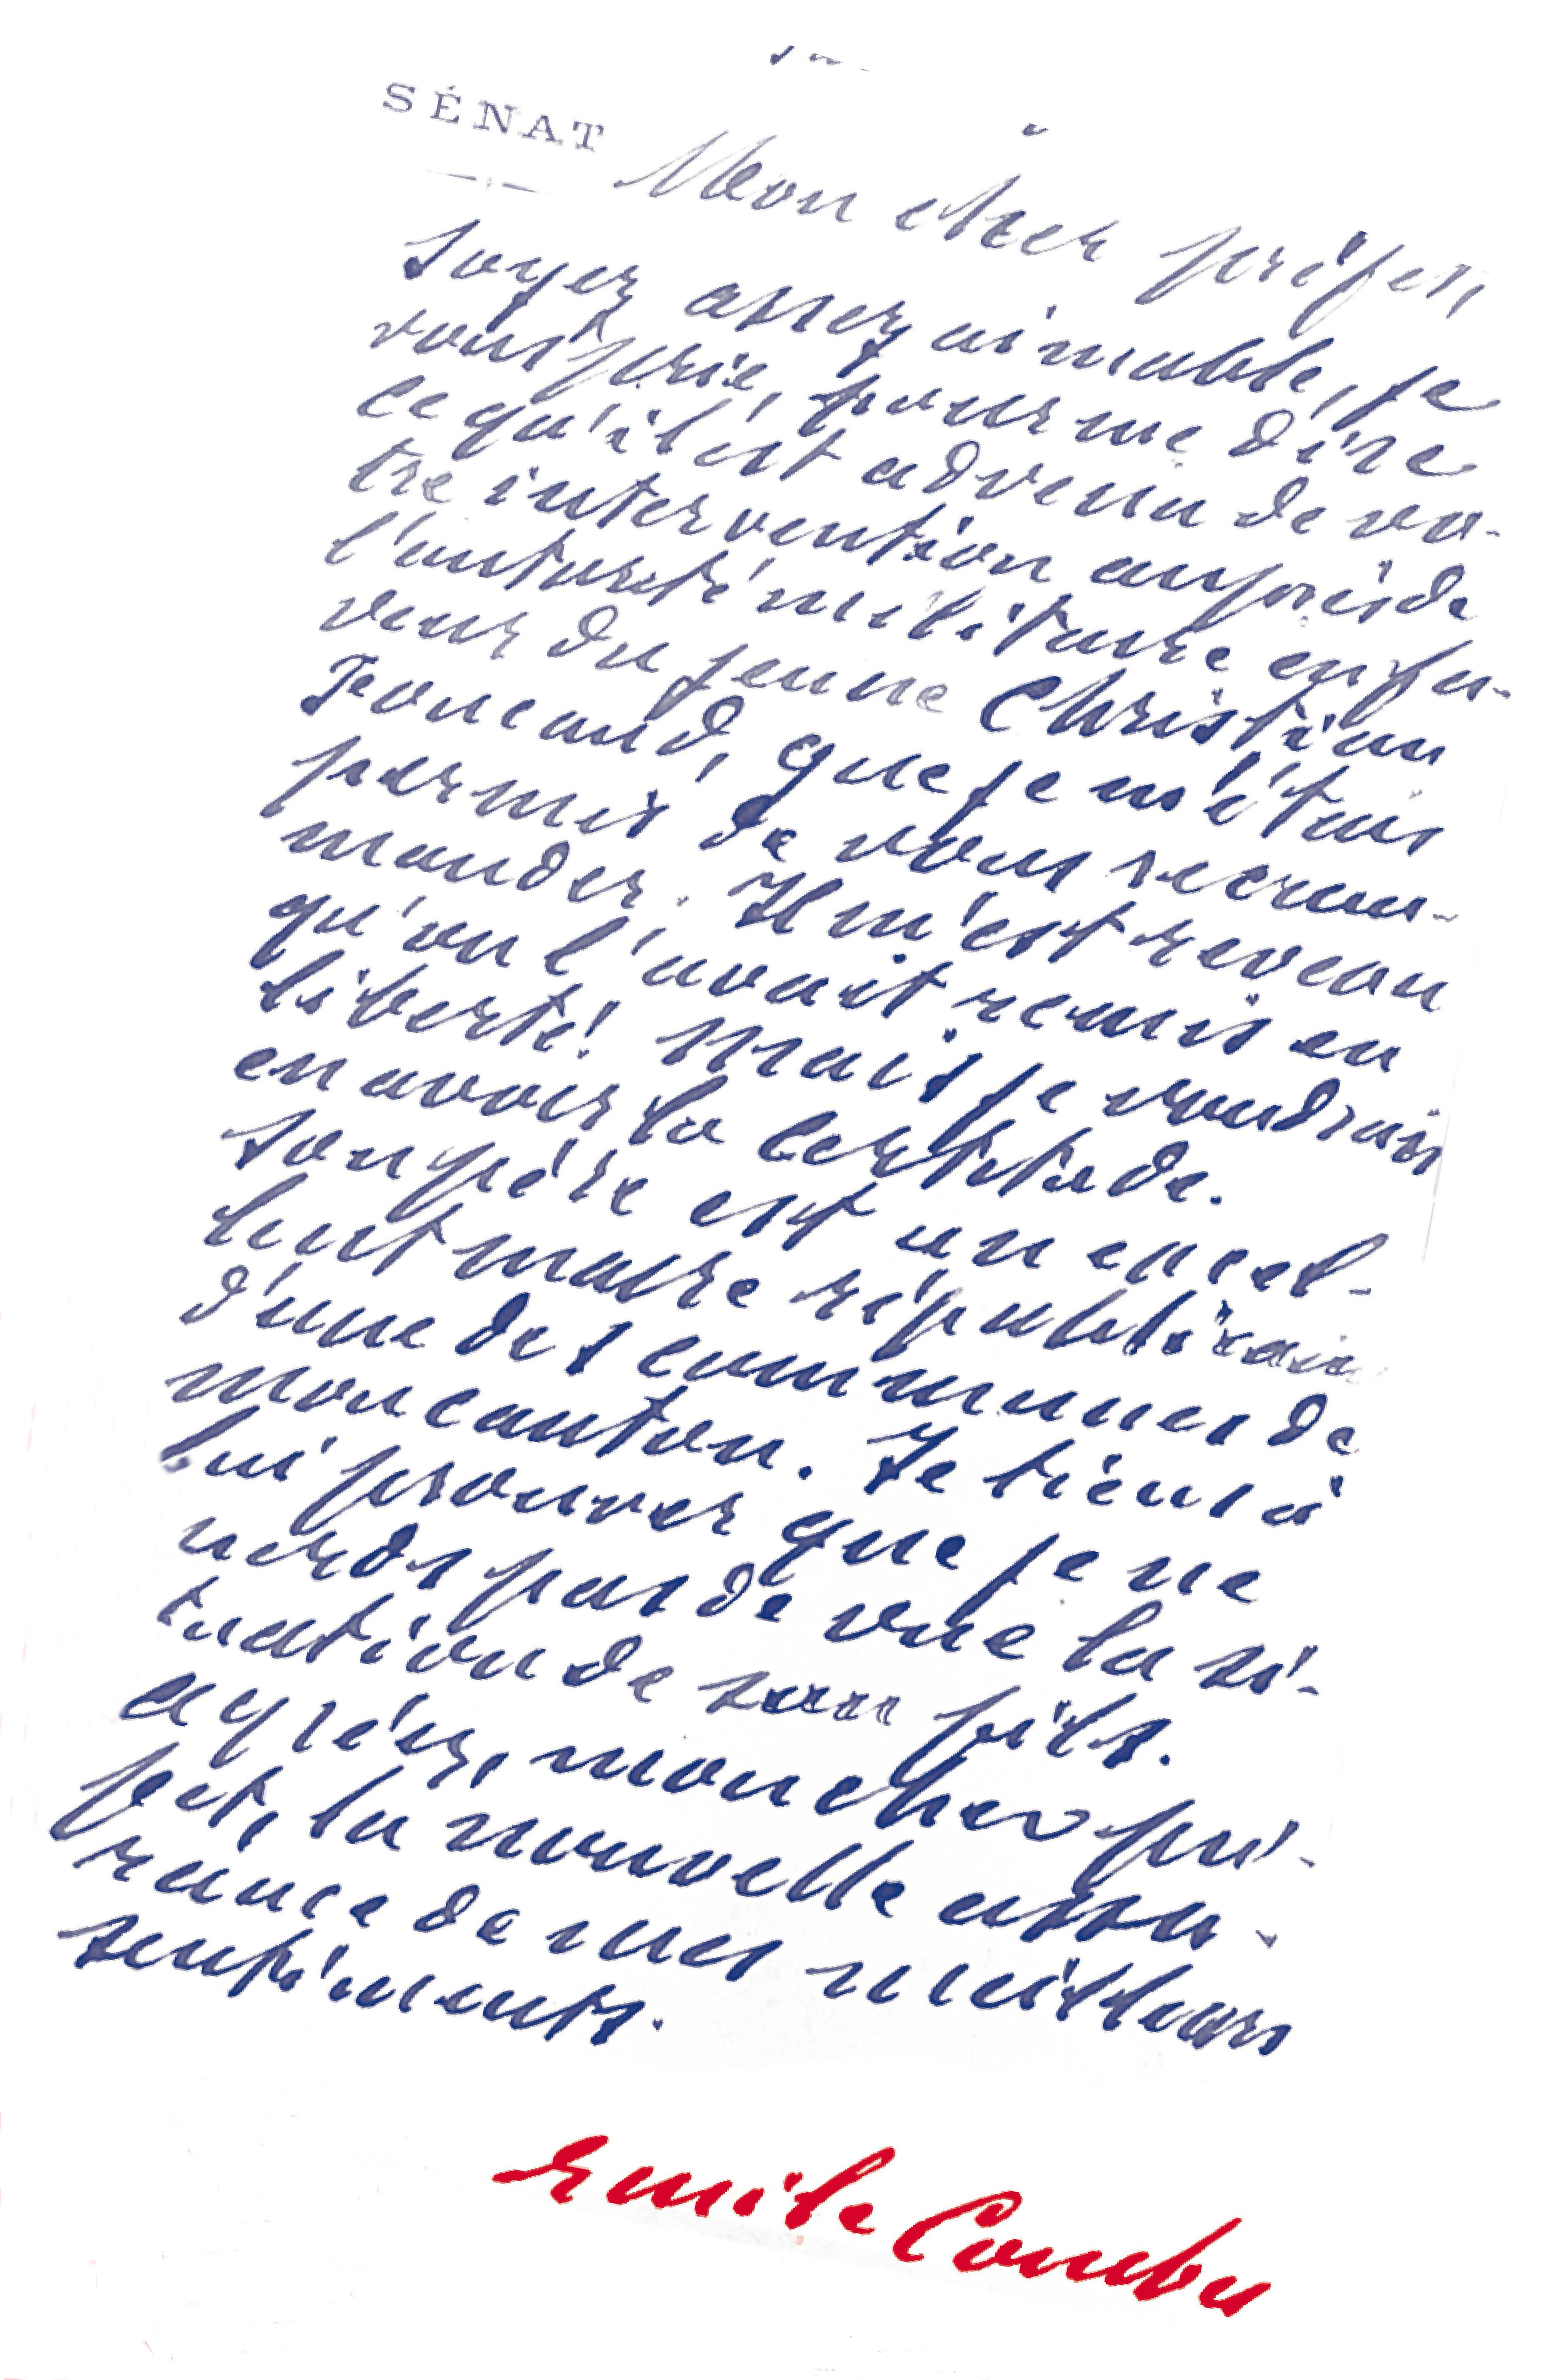 SÉNAT
Mon cher préfet,
Soyez assez aimable, je
vous prie, pour me dire
ce qu'il est advenu de vo-
tre intervention auprès de
l'autorité militaire en fa-
veur du jeune Christian
que je m'étais
permis de vous recom-
mander. Il m'est revenu
qu'on l'avait remis en
liberté! Mais je voudrais
en avoir la certitude.
Son père est un excel-
lent maire républicain
d'une des communes de
mon canton. Je tiens à
lui prouver que je ne
perds pas de vue la si-
tuation de son fils.
Agréez, mon cher pré-
fet, la nouvelle assu-
rance de mes meilleurs
sentiments.
Emile Combes